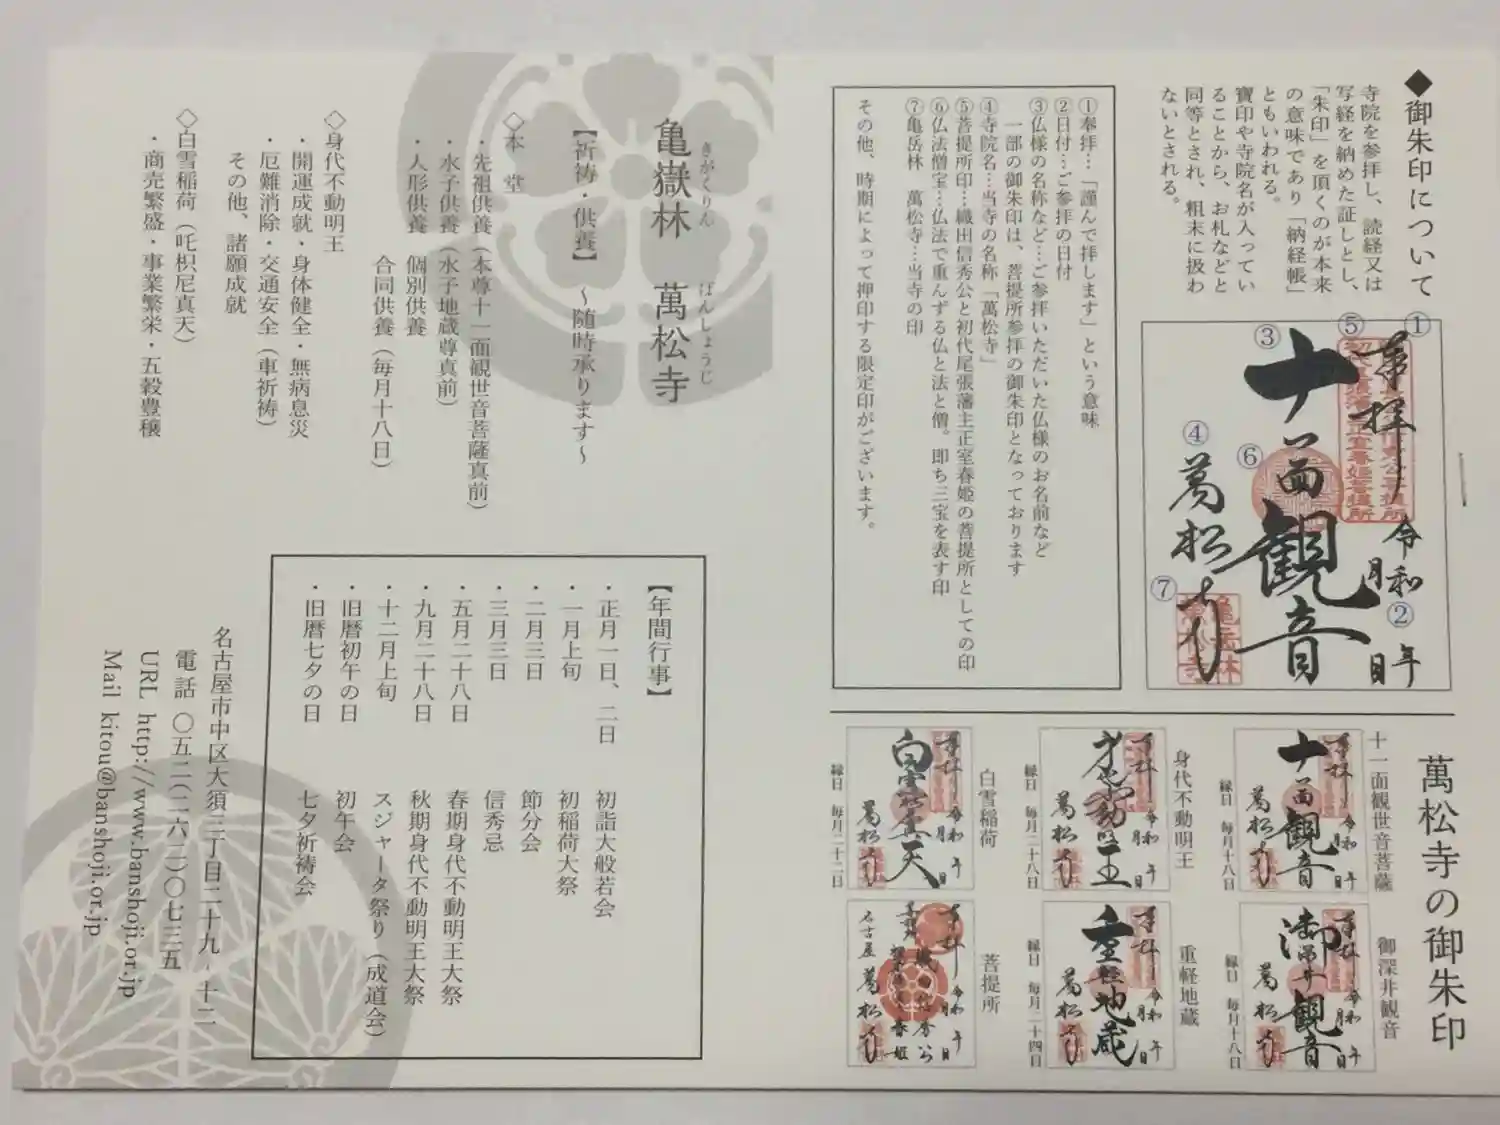 ◆御朱印について
寺院を参拝し、読経又は
写経を納めた証しとし、
「朱印」を頂くのが本来
の意味であり「納経帳」
ともいわれる。
寶印や寺院名が入ってい
ることから、お札などと
同等とされ、粗末に扱わ
ないとされる。
①
奉拝
⑤
③
十一面観音
⑥
令和 年
②
月 日
④
萬松寺
⑦
亀岳林
萬松寺
①奉拝…「謹んで拝します」という意味
②日付…ご参拝の日付
③仏様の名称など…ご参拝いただいた仏様のお名前など
一部の御朱印は、菩提所参拝の御朱印となっております
④寺院名…当寺の名称「萬松寺」
⑤菩提所印…織田信秀公と初代尾張藩主正室春姫の菩提所としての印
⑥仏法僧宝…仏法で重んずる仏と法と僧。即ち三宝を表す印
⑦亀岳林 萬松寺…当寺の印
その他、時期によって押印する限定印がございます。
萬松寺の御朱印
十一面観世音菩薩
奉拝
十一面観音
令和 年 月 日
萬松寺
縁日 毎月十八日
身代不動明王
奉拝
令和 年 月 日
萬松寺
縁日 毎月二十八日
白雪稲荷
奉拝
令和 年 月 日
萬松寺
縁日 毎月二十二日
御深井観音
奉拝
御深井観音
令和 年 月 日
萬松寺
縁日 毎月十八日
重軽地蔵
奉拝
重軽地蔵
令和 年 月 日
萬松寺
縁日 毎月二十四日
菩提所
奉拝
令和 年 月 日
名古屋 萬松寺
亀嶽林 萬松寺
きがくりん ばんしょうじ
【祈祷・供養】 〜随時承ります〜
◇本 堂
・先祖供養(本尊十一面観世音菩薩真前)
・水子供養(水子地蔵尊真前)
・人形供養 個別供養
合同供養(毎月十八日)
◇身代不動明王
・開運成就・身体健全・無病息災
・厄難消除・交通安全(車祈祷)
その他、諸願成就
◇白雪稲荷(吒枳尼真天)
・商売繁盛・事業繁栄・五穀豊穣
【年間行事】
・正月一日、二日 初詣大般若会
・一月上旬 初稲荷大祭
・二月三日 節分会
・三月三日 信秀忌
・五月二十八日 春期身代不動明王大祭
・九月二十八日 秋期身代不動明王大祭
・十二月上旬 スジャータ祭り(成道会)
・旧暦初午の日 初午会
・旧暦七夕の日 七夕祈祷会
名古屋市中区大須三丁目二十九-十二
電話 〇五二(二六二)〇七三五
URL http://www.banshoji.or.jp
Mail kitou@banshoji.or.jp